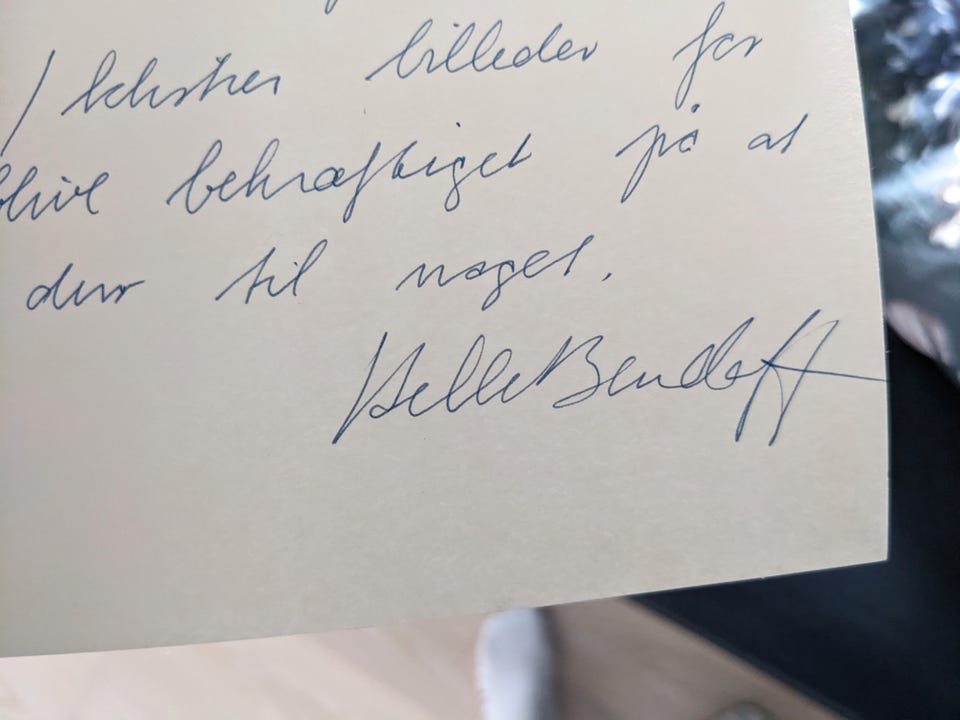 / tekster billeder for
blive bekræftiget på at
duer til noget.
Helle Bendorff